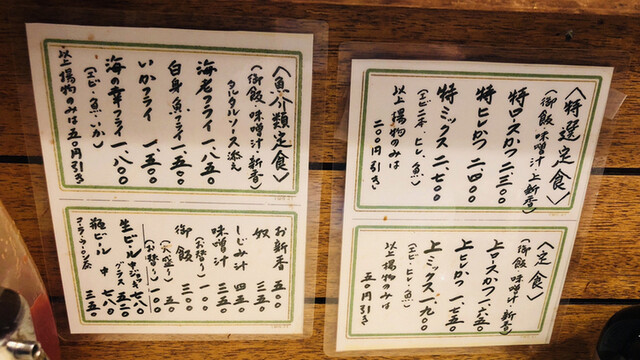 〈魚介類定食〉
(御飯・味噌汁・新香)
タルタルソース添え
海老フライ 一、八五〇
白身魚フライ 一、五〇〇
いかフライ 一、五〇〇
海の幸フライ 一、八〇〇
(エビ・魚・いか)
以上揚物のみは五〇円引き
お新香 五〇〇
奴 三五〇
しじみ汁 四五〇
味噌汁 三〇〇
(お替り) 一〇〇
御飯 三〇〇
(大盛り) 五〇
(お替り) 一〇〇
生ビール 中ジョッキ 七八〇
グラス 五二〇
瓶ビール 中 七八〇
コーラ・ウーロン茶 三五〇
〈特選定食〉
(御飯・味噌汁・上新香)
特ロースかつ 二、三〇〇
特ヒレかつ 二、四〇〇
特ミックス 二、七〇〇
(エビ二本・ヒレ・魚)
以上揚物のみは
二〇〇円引き
〈定食〉
(御飯・味噌汁・新香)
上ロースかつ 一、六五〇
上ヒレかつ 一、七五〇
上ミックス 一、九〇〇
(エビ・ヒレ・魚)
以上揚物のみは
五〇円引き